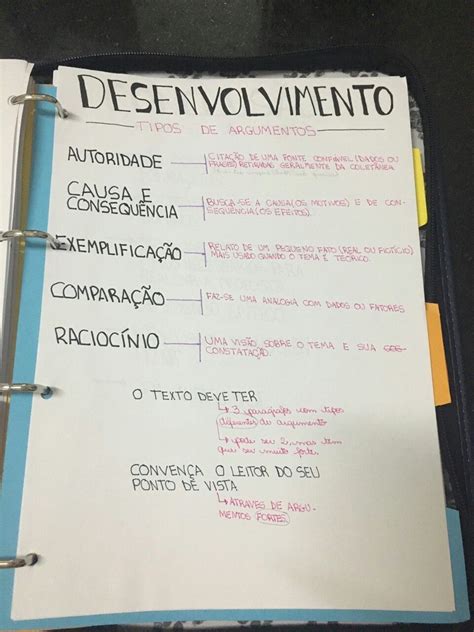 DESENVOLVIMENTO
TIPOS DE ARGUMENTOS
AUTORIDADE
CITAÇÃO DE UMA FONTE CONFIÁVEL (DADOS OU
FRASES) RETIRADAS GERALMENTE DA COLETÂNEA
CAUSA E
CONSEQUÊNCIA
BUSCA-SE A CAUSA (OS MOTIVOS) E DE CON-
SEQUÊNCIA (OS EFEITOS).
EXEMPLIFICAÇÃO
RELATO DE UM PEQUENO FATO (REAL OU FICTÍCIO)
MAIS USADO QUANDO O TEMA É TEÓRICO.
COMPARAÇÃO
FAZ-SE UMA ANALOGIA COM DADOS OU FATORES
RACIOCÍNIO
UMA VISÃO SOBRE O TEMA E SUA
CONSTATAÇÃO.
O TEXTO DEVE TER
↳ 3 parágrafos com tipos
diferentes de argumento
↳ pode ser 2, mas tem
que ser muito forte.
CONVENÇA O LEITOR DO SEU
PONTO DE VISTA
↳ ATRAVÉS DE ARGU-
MENTOS FORTES.